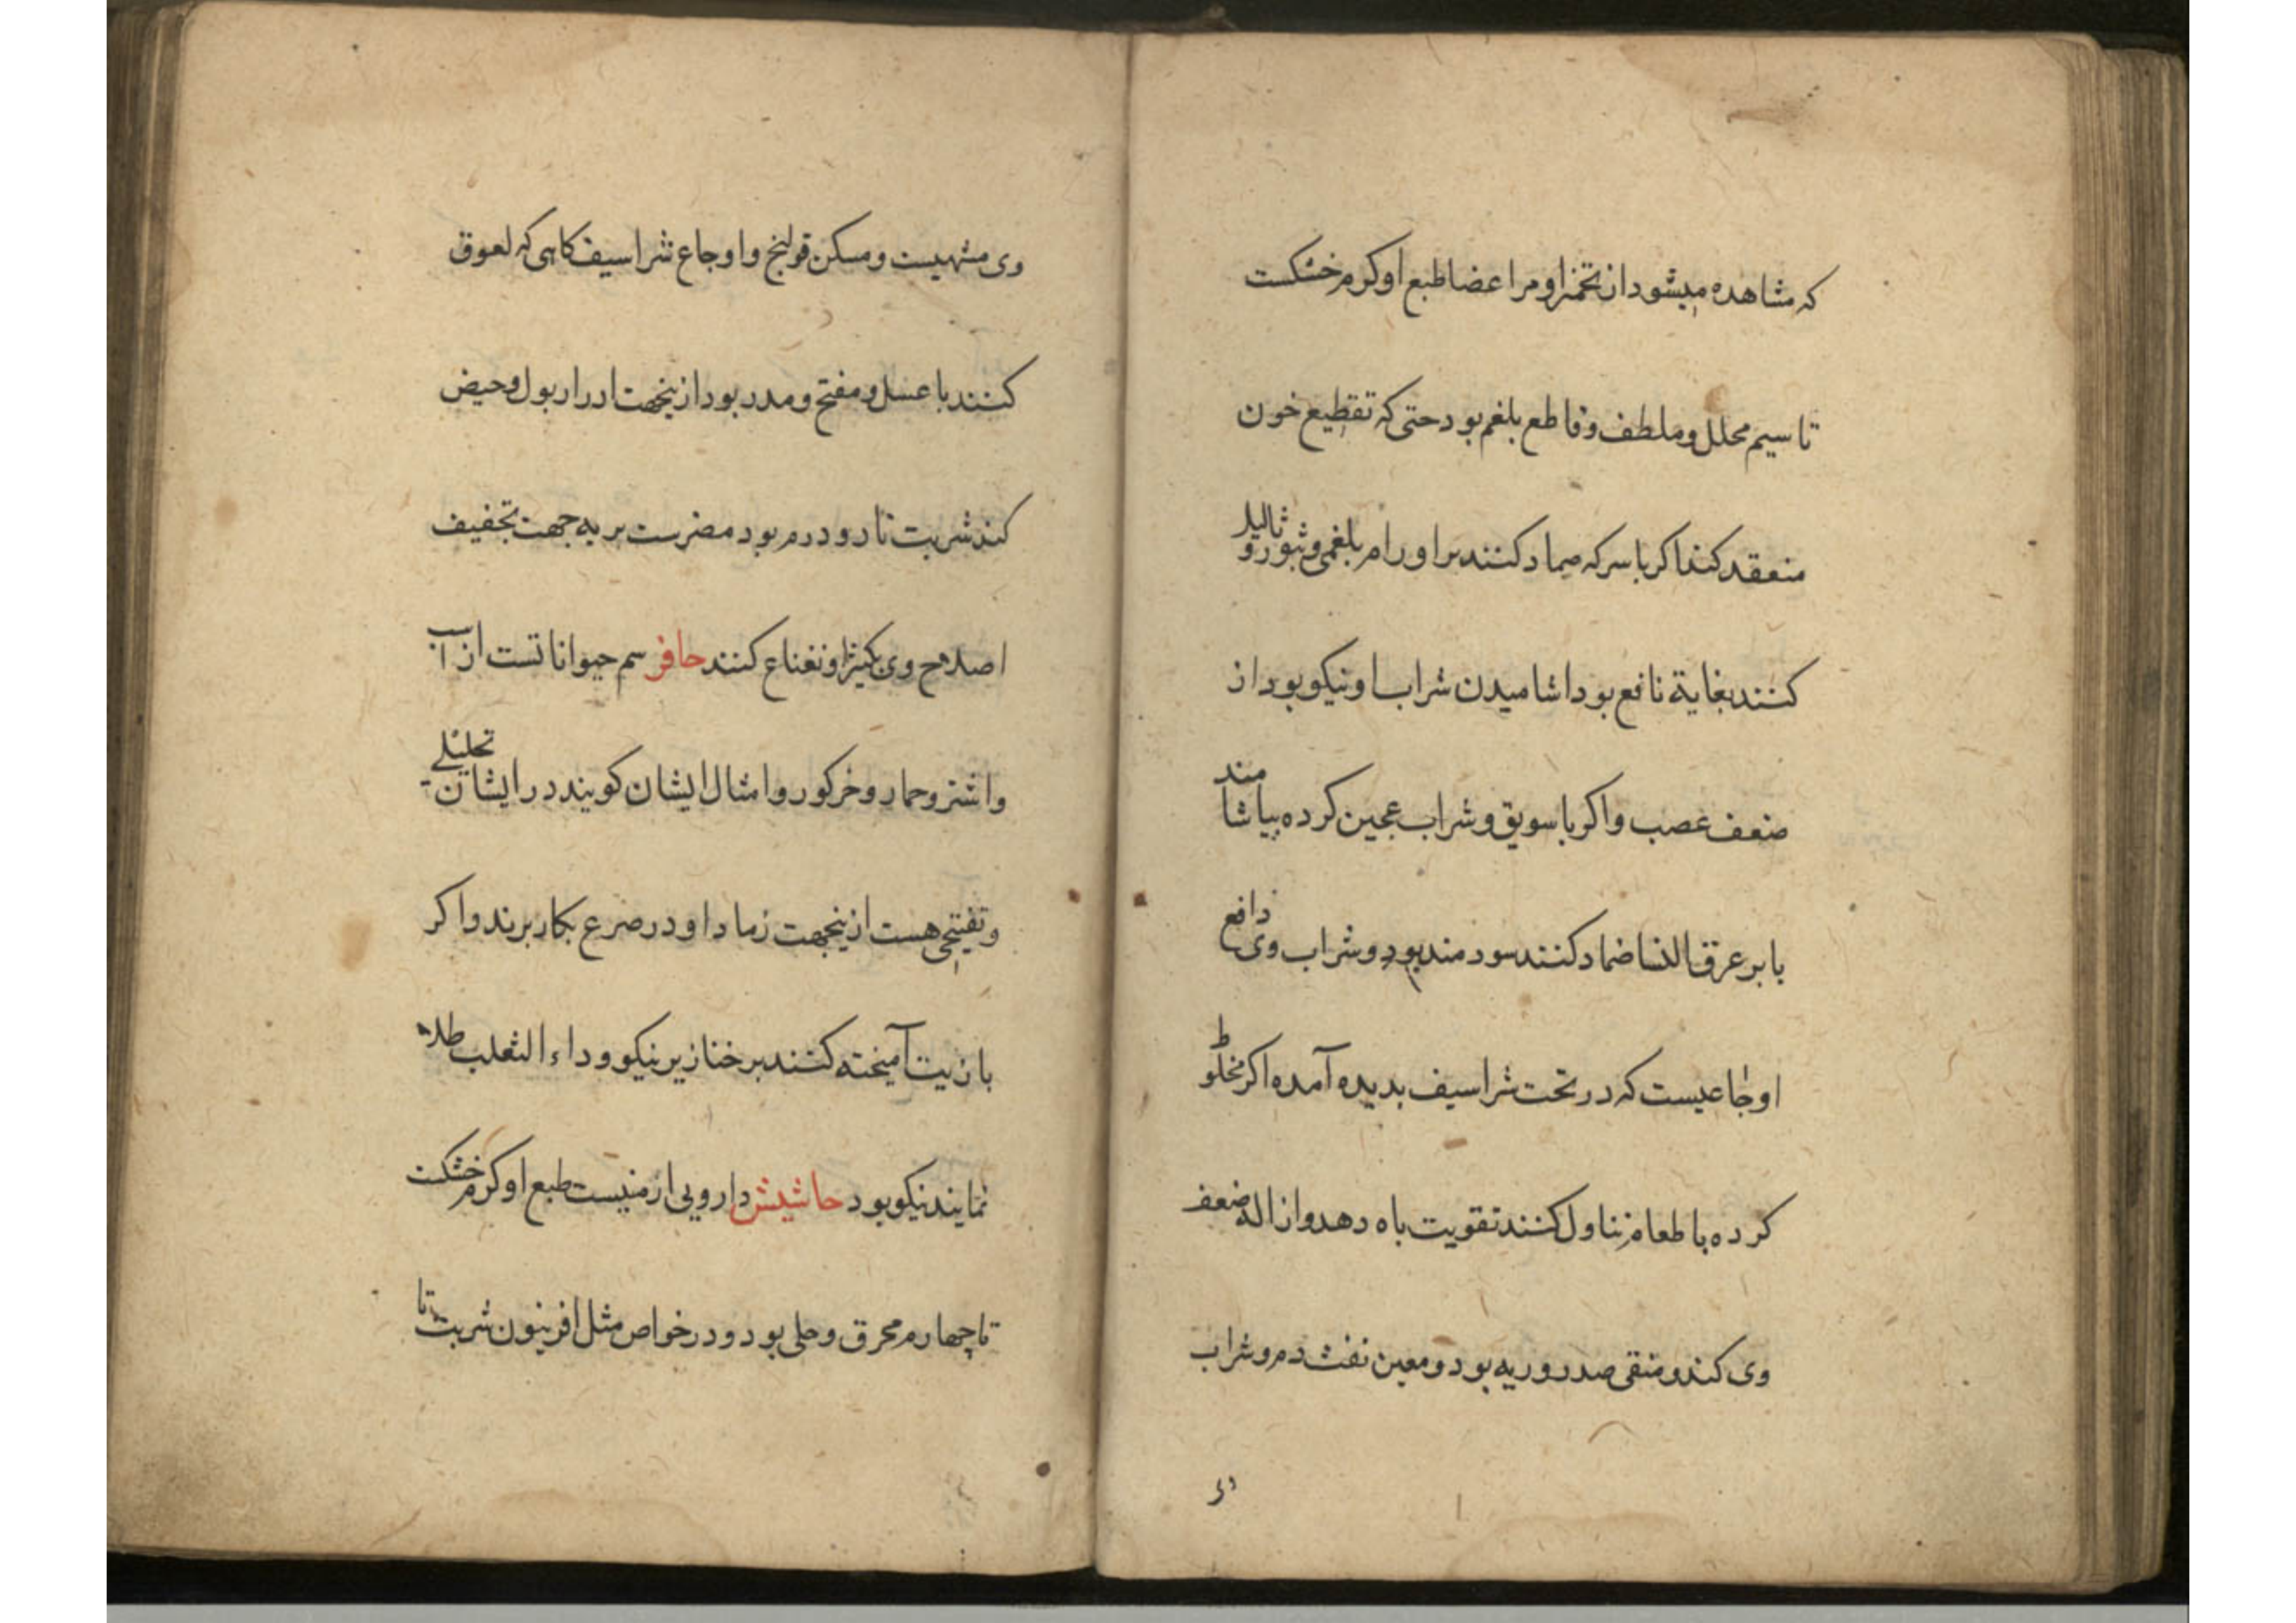 که مشاهده میشود از تخمر او مر اعضا طبع او کرم خشکست
تا سیم محلل و ملطف و قاطع بلغم بود حتی که تقطیع خون
منعقد کند اکر با سرکه ضماد کنند بر اورام بلغمی و ثبور و ثالیل
کنند بغایة نافع بود اشامیدن شراب او نیکو بود از
ضعف عصب و اکر با سویق و شراب عجین کرده بیاشامند
یا بر عرق النسا ضماد کنند سودمند بود و شراب وی دافع
اوجاعیست که در تحت شراسیف بدیده آمده اکر مخلوط
کرده با طعام تناول کنند تقویت باه دهد و ازاله ضعف
وی کند و منقی صدر و ریه بود و معین نفث دم و شراب
وی
وی مشهیست و مسکن قولنج و اوجاع شراسیف کاهی که لعوق
کنند با عسل و مفتح و مدر بود ازینجهت ادرار بول و حیض
کند شربت تا دو درم بود مضرست بریه جهت تجفیف
اصلاح وی بکتیرا و نعناع کنند حافر سم حیواناتست از اسب
و اشتر و حمار و خرکور و امثال ایشان کویند در ایشان تحلیلی
و تفتیحی هست ازینجهت رماد او در صرع بکار برند و اکر
با زیت آمیخته کنند بر خنازیر نیکو و داء الثعلب طلاء
نمایند نیکو بود حاشیش دارویی ارمنیست طبع او کرم خشکست
تا چهارم محرق و جلی بود و در خواص مثل افربیون شربت تا